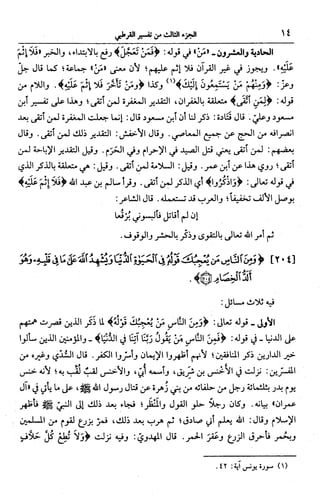 ١٤ الجزء الثالث من تفسير القرطبي
الحادية والعشرون ـ «مَن» في قوله: ﴿فَمَنْ تَعَجَّلَ﴾ رفع بالابتداء، والخبر ﴿فَلَا إِثْمَ
عَلَيْهِ﴾. ويجوز في غير القرآن فلا إثم عليهم؛ لأن معنى «مَن» جماعة؛ كما قال جل
وعز: ﴿وَمِنْهُمْ مَنْ يَسْتَمِعُونَ إِلَيْكَ﴾(١) وكذا ﴿وَمَنْ تَأَخَّرَ فَلَا إِثْمَ عَلَيْهِ﴾. واللام من
قوله: ﴿لِمَنِ اتَّقَى﴾ متعلقة بالغفران، التقدير المغفرة لمن اتقى؛ وهذا على تفسير ابن
مسعود وعليّ. قال قتادة: ذكر لنا أن ابن مسعود قال: إنما جعلت المغفرة لمن اتقى بعد
انصرافه من الحج عن جميع المعاصي. وقال الأخفش: التقدير ذلك لمن اتقى. وقال
بعضهم: لمن اتقى يعني قتل الصيد في الإحرام وفي الحَرَم. وقيل التقدير الإباحة لمن
اتقى؛ روي هذا عن ابن عمر. وقيل: السلامة لمن اتقى. وقيل: هي متعلقة بالذكر الذي
في قوله تعالى: ﴿وَاذْكُرُوا﴾ أي الذكر لمن اتقى. وقرأ سالم بن عبد الله ﴿فَلَا إِثْمَ عَلَيْهِ﴾
بوصل الألف تخفيفاً؛ والعرب قد تستعمله. قال الشاعر:
إن لم أقاتل فألبسوني بُرْقُعا
ثم أمر الله تعالى بالتقوى وذكّر بالحشر والوقوف.
[٢٠٤] ﴿وَمِنَ النَّاسِ مَن يُعْجِبُكَ قَوْلُهُ فِي الْحَيَوٰةِ الدُّنْيَا وَيُشْهِدُ اللَّهَ عَلَىٰ مَا فِي قَلْبِهِ وَهُوَ
أَلَدُّ الْخِصَامِ﴾.
فيه ثلاث مسائل:
الأولى ـ قوله تعالى: ﴿وَمِنَ النَّاسِ مَنْ يُعْجِبُكَ قَوْلُهُ﴾ لما ذكر الذين قصرت همتهم
على الدنيا ـ في قوله: ﴿فَمِنَ النَّاسِ مَنْ يَقُولُ رَبَّنَا آتِنَا فِي الدُّنْيَا﴾ ـ والمؤمنين الذين سألوا
خير الدارين ذكر المنافقين؛ لأنهم أظهروا الإيمان وأسرّوا الكفر. قال السُّدِّي وغيره من
المفسرين: نزلت في الأخنس بن شريق، واسمه أُبَيّ، والأخنس لقبٌ لُقِّب به؛ لأنه خنس
يوم بدر بثلثمائة رجل من حلفائه من بني زُهرة عن قتال رسول الله ﷺ، على ما يأتي في «آل
عمران» بيانه. وكان رجلاً حلو القول والمنظر؛ فجاء بعد ذلك إلى النبيّ ﷺ فأظهر
الإسلام وقال: الله يعلم أني صادق؛ ثم هرب بعد ذلك، فمرّ بزرع لقوم من المسلمين
وبحُمر فأحرق الزرع وعقر الحمر. قال المهدويّ: وفيه نزلت ﴿وَلَا تُطِعْ كُلَّ حَلَّافٍ
(١) سورة يونس آية: ٤٢.